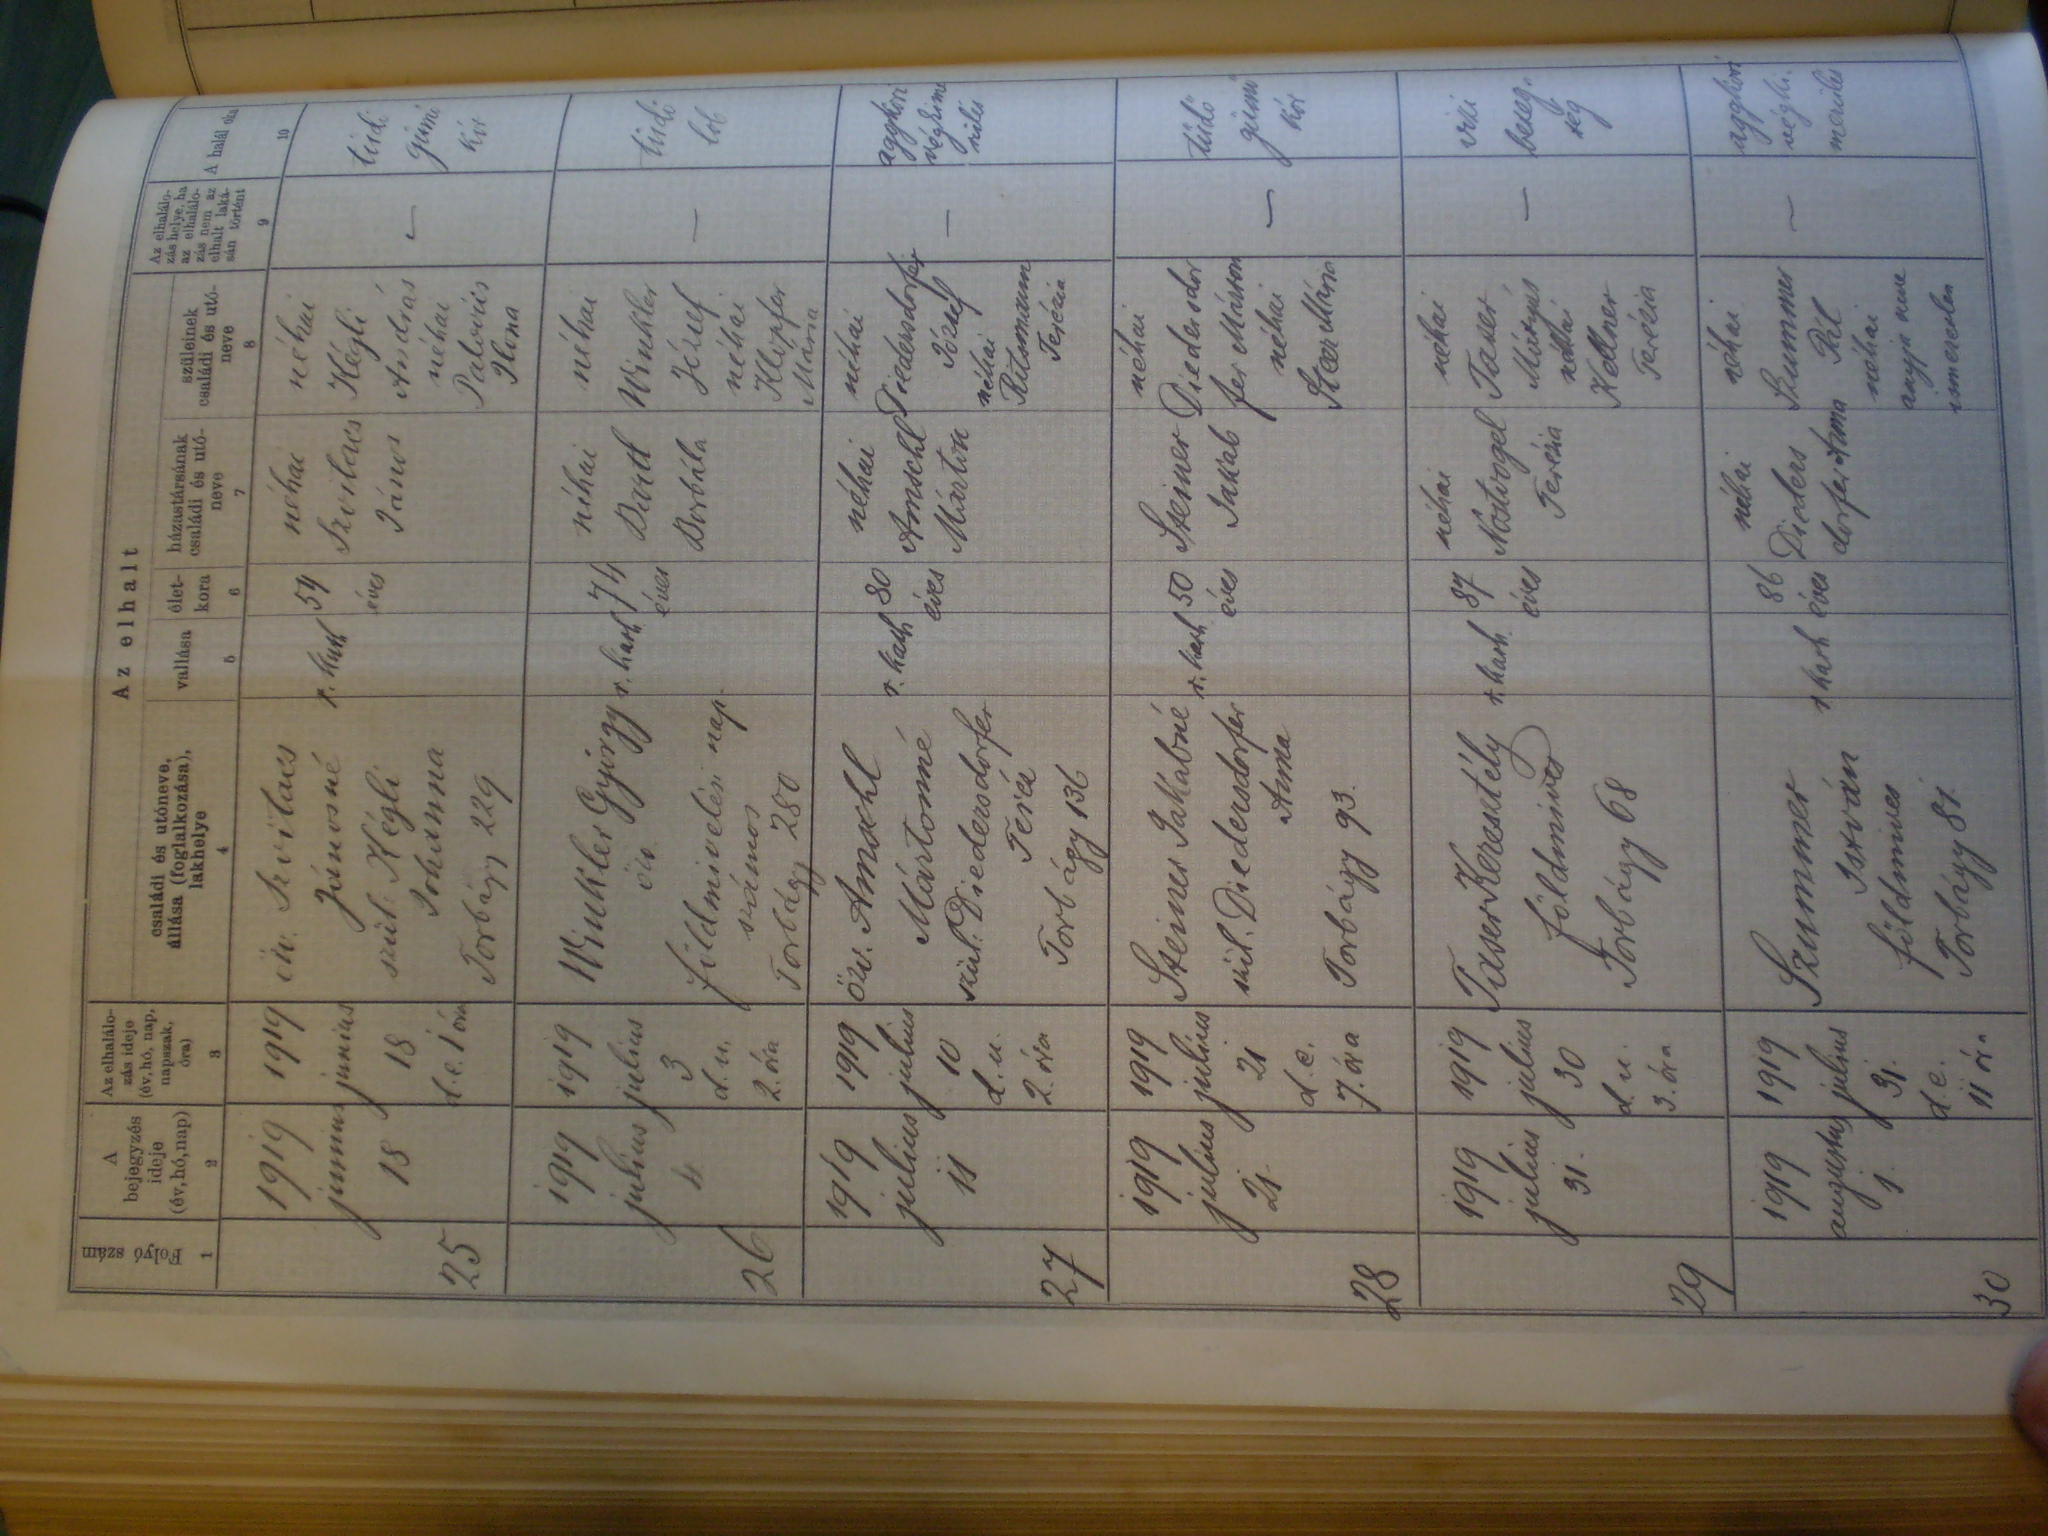 Az elhalt
Folyó szám
A
bejegyzés
ideje
(év, hó, nap)
Az elhalálo-
zás ideje
(év, hó, nap,
napszak,
óra)
családi és utóneve,
állása (foglalkozása),
lakhelye
vallása
élet-
kora
házastársának
családi és utó-
neve
szüleinek
családi és utó-
neve
Az elhalálo-
zás helye, ha
az elhalálo-
zás nem az
elhalt laká-
sán történt
A halál oka
1
2
3
4
5
6
7
8
9
10
25
1919
junius
18
1919
junius
18
d.e. 1 óra
öv. Szvitacs
Jánosné
szül. Kégli
Johanna
Torbágy 229
r. kath
54
éves
néhai
Szvitacs
János
néhai
Kégli
András
néhai
Palovics
Ilona
—
tüdő
gümő
kór
26
1919
julius
4
1919
julius
3
d.u.
2. óra
Winkler György
öv.
földmivelési nap
számos
Torbágy 280
r. kath
74
éves
néhai
Bartl
Borbála
néhai
Winkler
József
néhai
Klipfer
Mária
—
tüdő
lob
27
1919
julius
11
1919
julius
10
d.u.
2. óra
özv. Amschl
Mártonné
szül. Diedersdorfer
Teréz
Torbágy 136
r. kath
80
éves
néhai
Amschl
Márton
néhai
Diedersdorfer
József
néhai
Terézia
—
aggkori
végkime
rülés
28
1919
julius
21
1919
julius
21
d.e.
7. óra
Steiner Jakabné
szül. Diedersdorfer
Anna
Torbágy 93.
r. kath
50
éves
Steiner
Jakab
néhai
Diedersdor
fer Márton
néhai
Mária
—
tüdő
gümő
kór
29
1919
julius
31.
1919
julius
30
d.u.
3. óra
Taser Keresztély
földmives
Torbágy 68
r. kath.
87
éves
néhai
Terézia
néhai
Taser
Mátyás
néhai
Kellner
Terézia
—
vízi
beteg-
ség
30
1919
augusztus
1
1919
julius
31.
d.e.
11 óra
Szummer
István
földmives
Torbágy 81.
r kath
86
éves
néhai
Dieders
dorfer Anna
néhai
Szummer
Pál
néhai
anyja neve
ismeretlen
—
aggkori
végki-
merülés